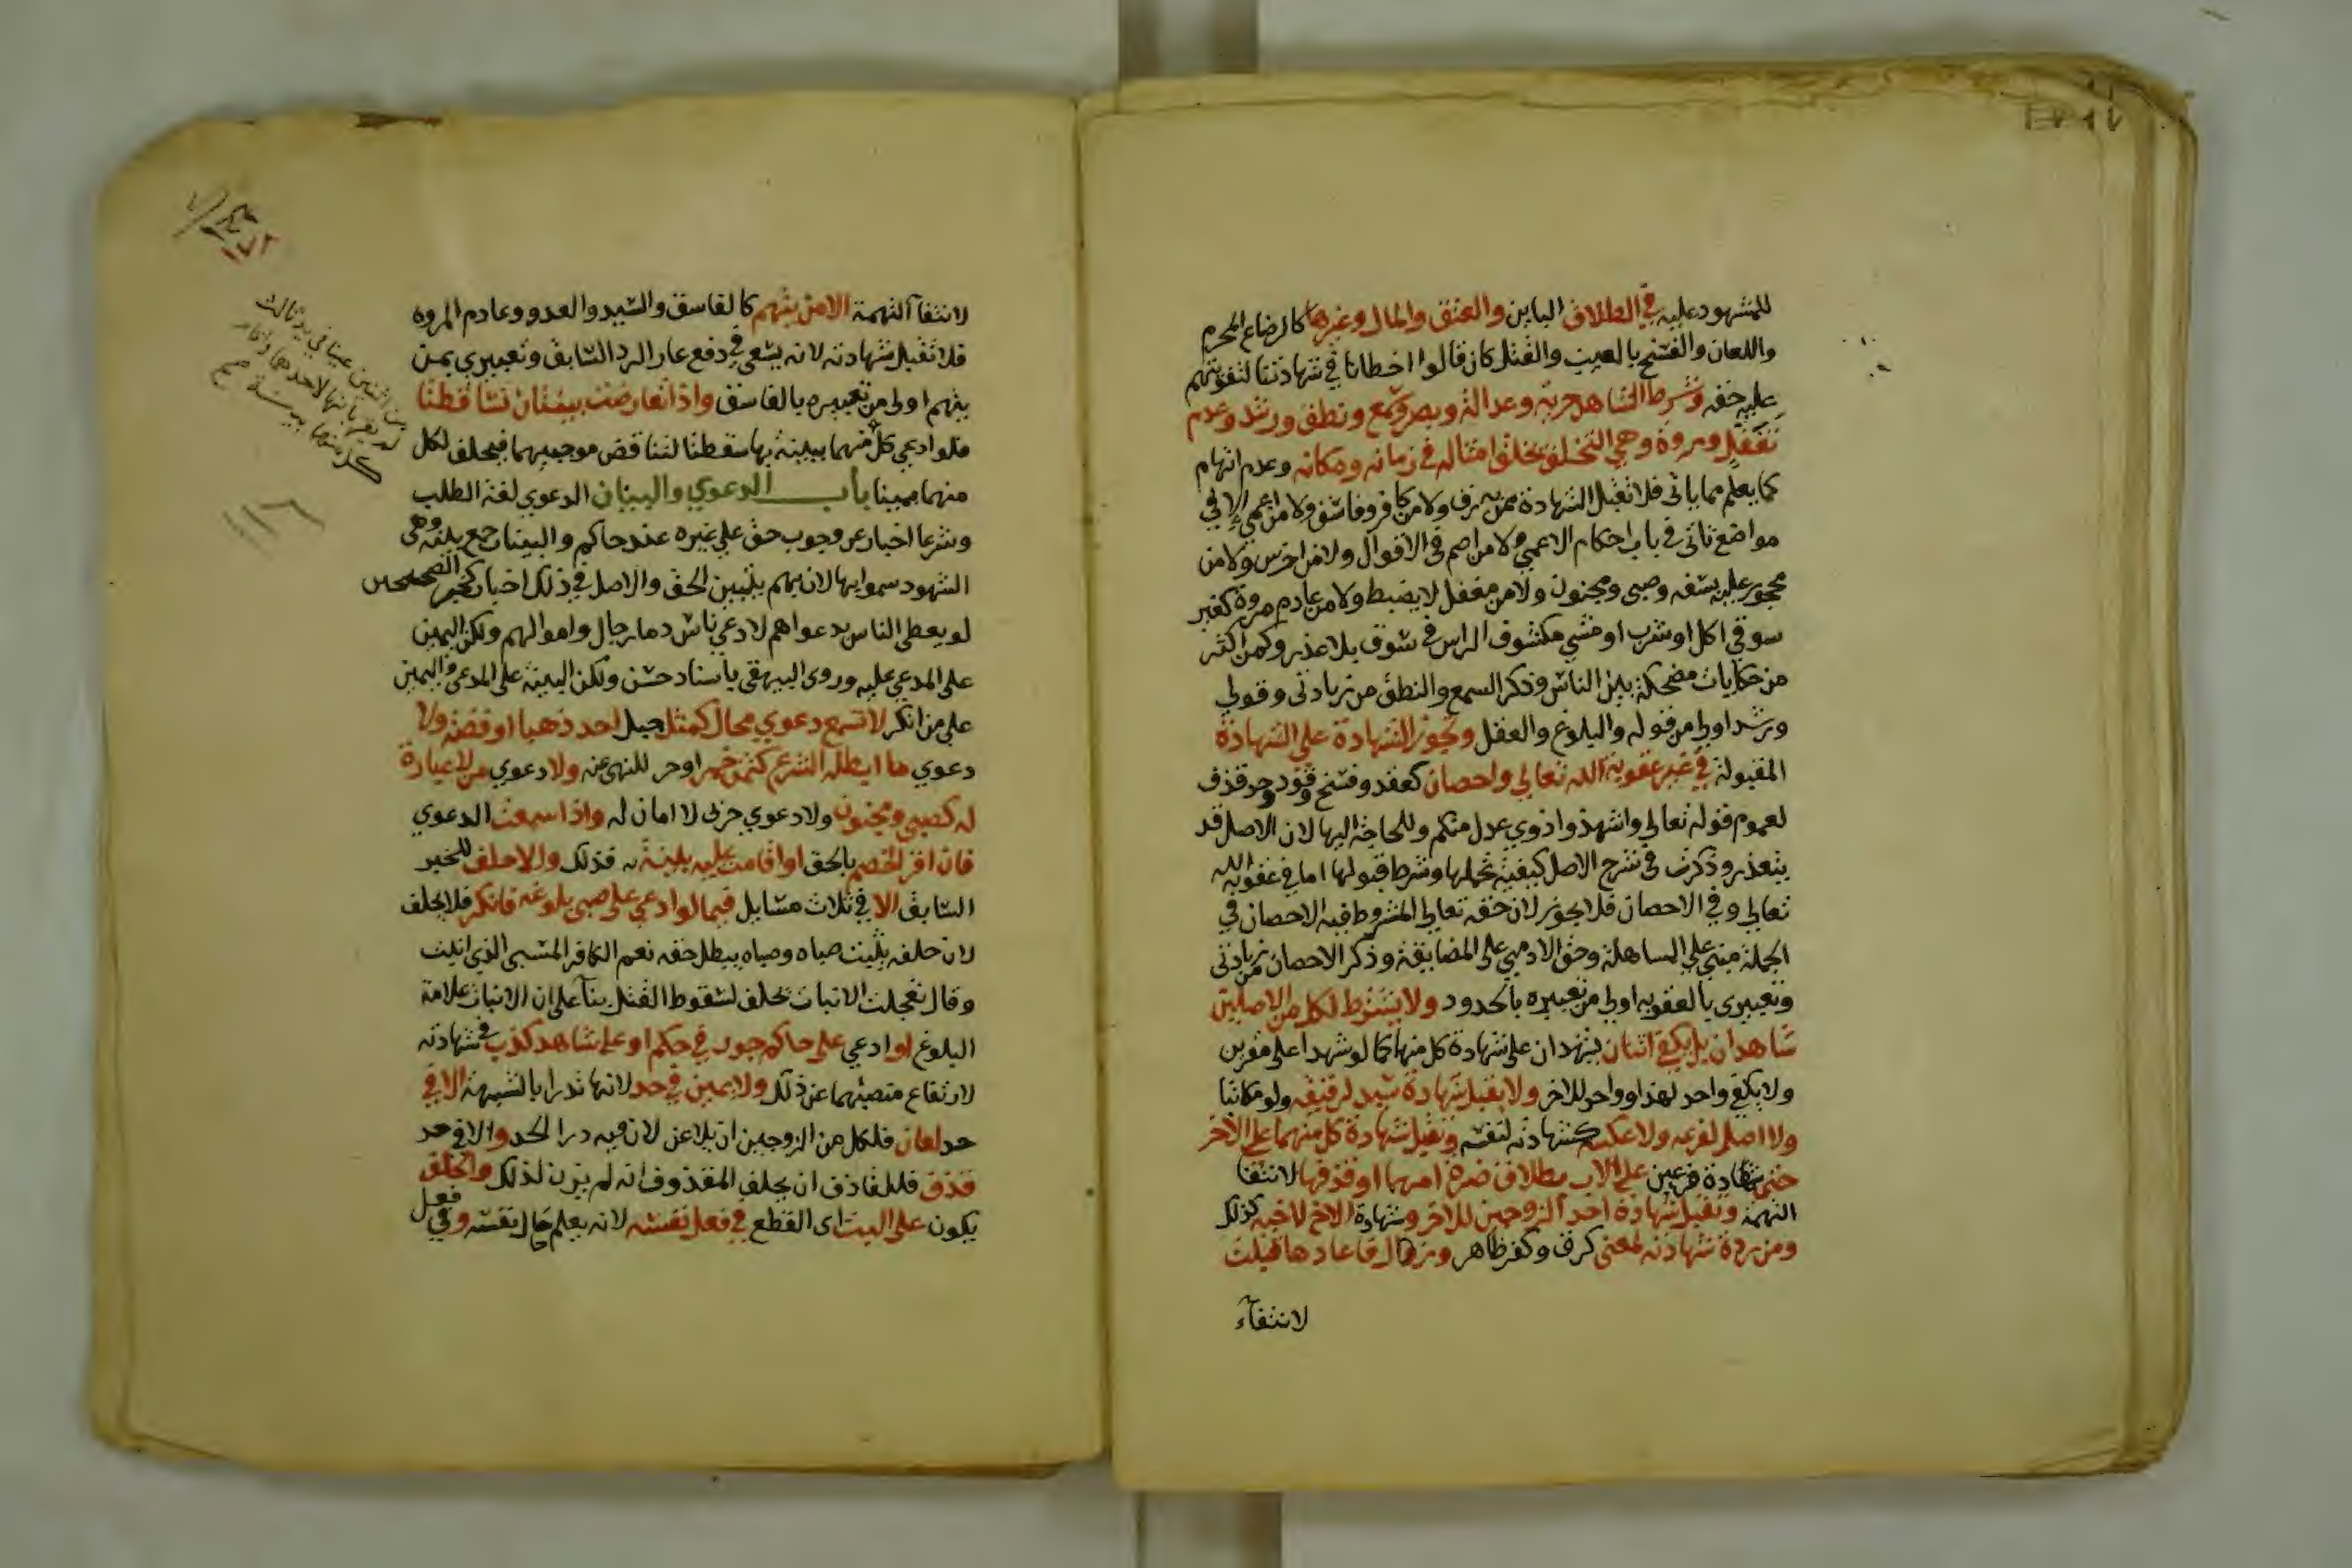 للمشهود عليه في الطلاق الباين والعتق والمال وغيرها كالرضاع المحرم
واللعان والفسخ بالعيب والقتل كان قالوا اخطانا في شهادتنا لتفويتهم
عليه حقه وشرط الشاهد حرية وعدالة وبصر وسمع ونطق ورشد وعدم
تغفل ومروة وهي التخلق بخلق امثاله في زمانه ومكانه وعدم اتهام
كما يعلم مما ياتى فلا تقبل الشهادة ممن به رق ولا من كافر وفاسق ولا من اعمى الا في
مواضع تاتى في باب احكام الاعمى ولا من اصم في الاقوال ولا من اخرس ولا من
محجور عليه بسفه وصبى ومجنون ولا من مغفل لا يضبط ولا من عادم مروة كغير
سوقى اكل او شرب او مشي مكشوف الراس في سوق بلا عذر وكمن اكثر
من حكايات مضحكة بين الناس وذكر السمع والنطق من زيادتى وقولي
ورشد اولي من قوله والبلوغ والعقل وتجوز الشهادة على الشهادة
المقبولة في غير عقوبة الله تعالي واحصان كعقد وفسخ وقود وحد قذف
لعموم قوله تعالي واشهدوا ذوي عدل منكم وللحاجة اليها لان الاصل قد
يتعذر وذكرت في شرح الاصل كيفية تحملها وشرط قبولها اما في عقوبة الله
تعالي وفي الاحصان فلا يجوز لان حقه تعالي المشروط فيه الاحصان في
الجملة مبني علي المساهلة وحق الادمي على المضايقة وذكر الاحصان من زيادتى
وتعبيري بالعقوبه اولي من تعبيره بالحدود ولا يشترط لكل من الاصلين
شاهدان بل يكفي اثنان يشهدان على شهادة كل منهما كما لو شهدا على مقرين
ولا يكفي واحد لهذا وواحد للاخر ولا يقبل شهادة سيد لرقيقه ولو مكاتبا
ولا اصل لفرعه ولا عكسه كشهادته لنفسه وتقبل شهادة كل منهما علي الاخر
حتى شهادة فرعين علي الاب بطلاق ضرة امهما او قذفها لانتفا
التهمة وتقبل شهادة احد الزوجين للاخر وشهادة الاخ لاخيه كذلك
ومن ردة شهادته لمعنى كرق وكفر ظاهر وزوال فاعادها قبلت
لانتفآء
لانتفآ التهمة الا من يتهم كالفاسق والسيد والعدو وعادم المروه
فلا تقبل شهادته لانه يسعى في دفع عار الرد السابق وتعبيري بمن
يتهم اولي من تعبيره بالفاسق واذا تعارضت بينتان تساقطتا
فلو ادعي كل منهما ببينة بها سقطتا لتناقض موجبيهما فيحلف لكل
منهما يمينا باب الدعوي والبينات الدعوي لغة الطلب
وشرعا اخبار عن وجوب حق علي غيره عند حاكم والبينات جمع بينة وهي
الشهود سموا بها لان بهم يتبين الحق والاصل في ذلك اخبار كخبر الصحيحين
لو يعطى الناس بدعواهم لادعي ناس دما رجال واموالهم ولكن اليمين
على المدعي عليه وروى البيهقي باسناد حسن ولكن البينة على المدعي واليمين
علي من انكر لا تسمع دعوي محال كمثل جبل احد ذهبا او فضه ولا
دعوي ما ابطله الشرع كثمن خمر او حر للنهي عنه ولا دعوي من لا عبارة
له كصبي ومجنون ولا دعوي حربى لا امان له واذا سمعت الدعوي
فان اقر الخصم بالحق او اقامت عليه بينة به فذلك والا حلف للخبر
السابق الا في ثلاث مسايل فيما لو ادعي على صبي بلوغه فانكر فلا يحلف
لان حلفه يثبت صباه وصباه يبطل حلفه نعم الكافر المسبى الذي انبت
وقال تعجلت الانبات يحلف لسقوط القتل بنآ على ان الانبات علامة
البلوغ او ادعي على حاكم جور في حكم او على شاهد كذب في شهادته
لارتفاع منصبهما عن ذلك ولا يمين في حد لانها تدرا بالشبهة الا في
حد لعان فلكل من الزوجين ان يلاعن لان فيه درا الحد والا في حد
قذف فللقاذف ان يحلف المقذوف انه لم يزن لذلك والحلف
يكون على البت اى القطع في فعل نفسه لانه يعلم حال نفسه وفي فعل
١٧٢